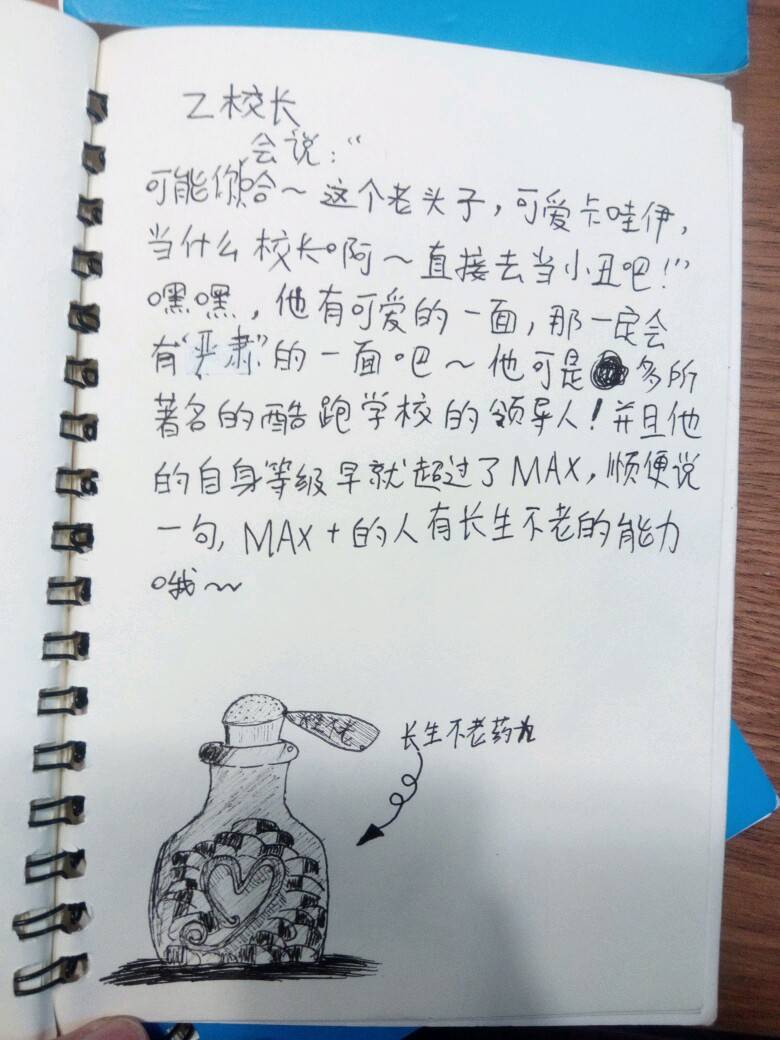 乙校长
会说：“
可能你哈～这个老头子，可爱卡哇伊，
当什么校长啊～直接去当小丑吧！”
嘿嘿，他有可爱的一面，那一定会
有“严肃”的一面吧～他可是多所
著名的酷跑学校的领导人！并且他
的自身等级早就超过了MAX，顺便说
一句，MAX+的人有长生不老的能力
哦～
长生不老
长生不老药